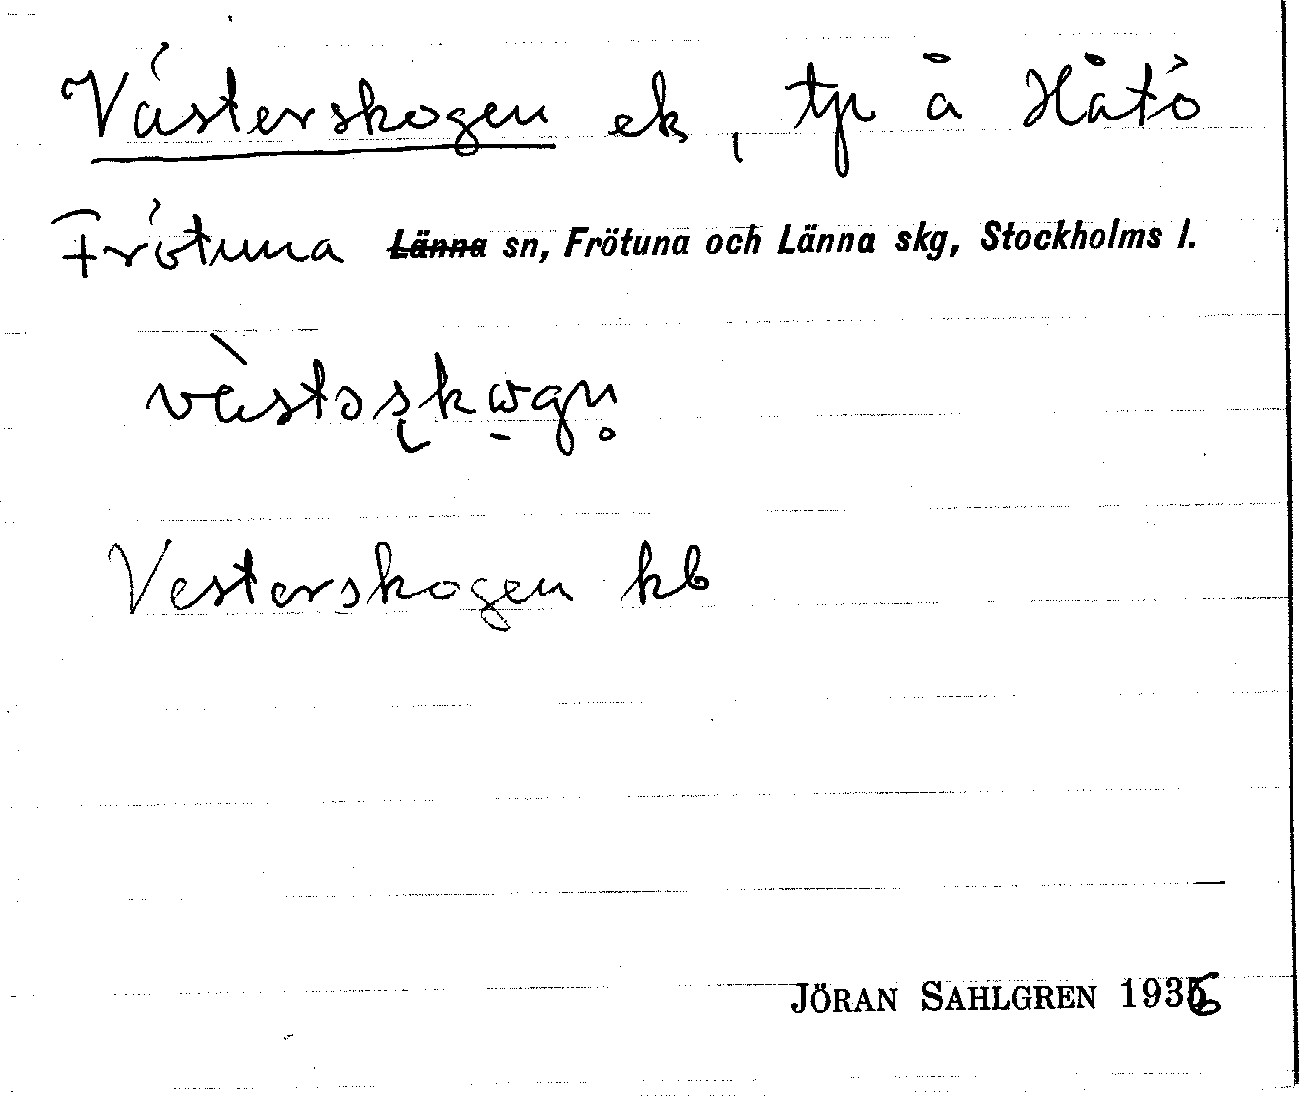 Västerskogen ek, tp å Håtö
Frötuna Länna sn, Frötuna och Länna skg, Stockholms l.
Vesterskogen kb
JÖRAN SAHLGREN 1936